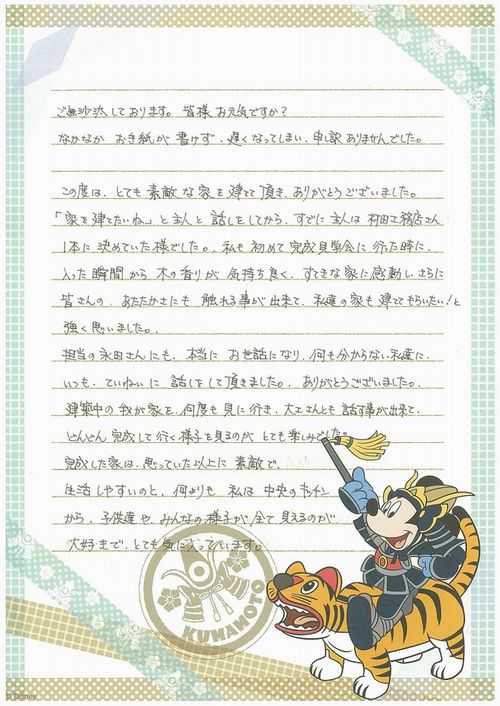 ご無沙汰しております。皆様お元気ですか?
なかなか お手紙が 書けず、遅くなってしまい、申し訳ありませんでした。
この度は、とても 素敵な家を建てて頂き、ありがとうございました。
「家を建てたいね。」と主人と 話しをしてから、すでに主人は 村田工務店さん
1本に決めていた様でした。私も 初めて 完成見学会に 行った時に、
入った瞬間から 木の香りが 気持ち良く、すてきな家に感動し、さらに
皆さんの、あたたかさにも 触れる事が出来て、私達の家も建ててもらいたい!と
強く思いました。
担当の永田さんにも、本当に お世話になり、何も分からない私達に、
いつも、ていねいに 話しをして頂きました。ありがとうございました。
建築中の我が家を、何度も見に行き、大工さんとも 話す事が出来て、
どんどん完成して行く様子を見るのが とても楽しみでした。
完成した家は、思っていた以上に 素敵で、
生活しやすいのと、何よりも 私は 中央のキッチン
から、子供達や、みんなの様子が、全て見えるのが
大好きで、とても気に入っています。
KUMAMOTO
© Disney